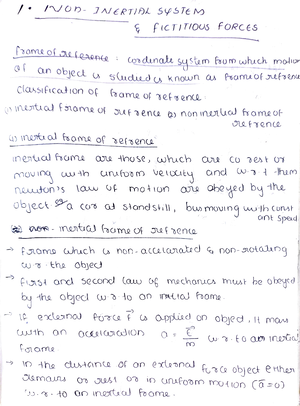 1. NON-INERTIAL SYSTEM
& FICTITIOUS FORCES
frame of refrence: cordinate system from which motion
of an object is studied is known as frame of refrence
classification of frame of refrence
(i) inertial frame of refrence (ii) non inertial frame of
refrence
(i) inertial frame of refrence
inertial frame are those, which are co rest or
moving with uniform velocity and w.r.t them
newton's law of motion are obeyed by the
object a car at standstill, bus moving with const
ant speed
non-inertial frame of refrence
→ frame which is non-accelarated & non-rotating
w.r. the object
→ first and second law of mechanics must be obeyed
by the object w.r to an inrtial frame.
→ If external force F is applied on object. It man
with an accelaration a = F/m w.r. to an inertial
frame.
→ in the distance of an external force object either
remains or rest or in uniform motion (a=0)
w.r. to an inertial frame.